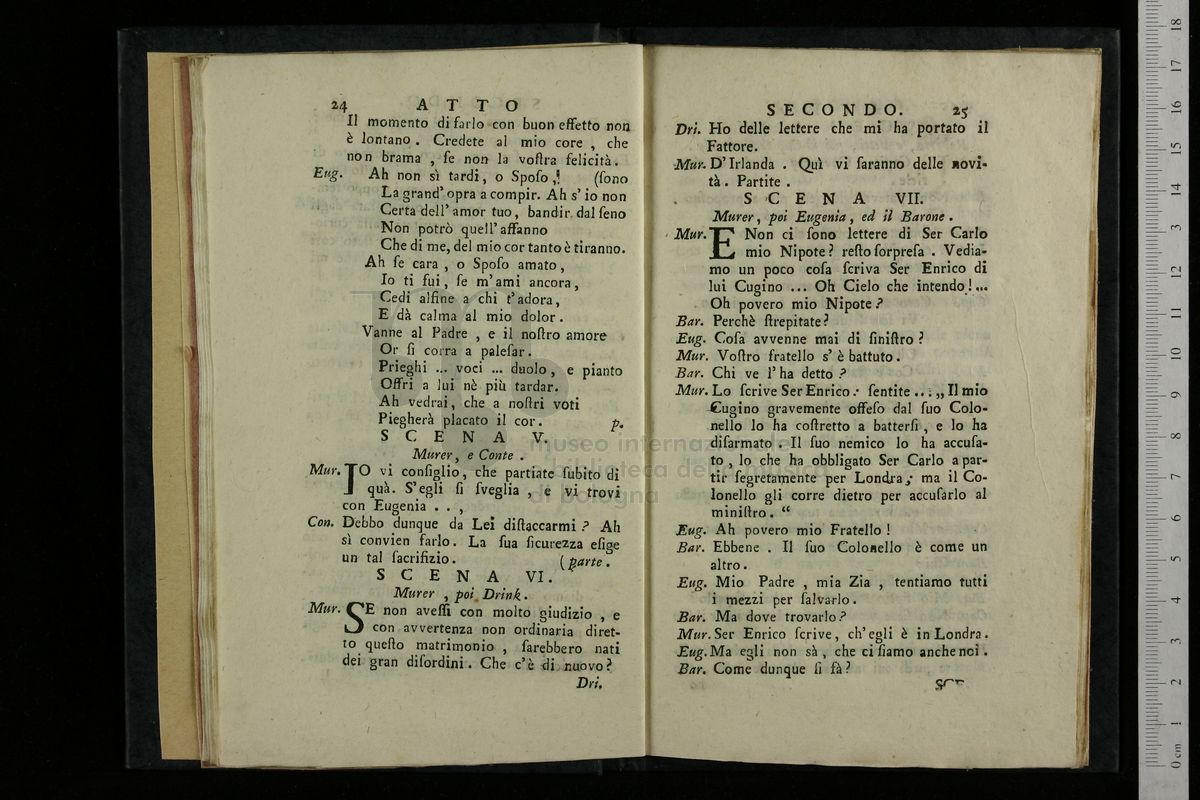 24 ATTO
Il momento di farlo con buon effetto non
è lontano. Credete al mio core, che
non brama, ſe non la voſtra felicità.
Eug. Ah non sì tardi, o Spoſo,! (ſono
La grand' opra a compir. Ah s' io non
Certa dell' amor tuo, bandir dal ſeno
Non potrò quell' affanno
Che di me, del mio cor tanto è tiranno.
Ah ſe cara, o Spoſo amato,
Io ti fui, ſe m' ami ancora,
Cedi alfine a chi t' adora,
E dà calma al mio dolor.
Vanne al Padre, e il noſtro amore
Or ſi corra a paleſar.
Prieghi ... voci ... duolo, e pianto
Offri a lui nè più tardar.
Ah vedrai, che a noſtri voti
Piegherà placato il cor. p.
SCENA V.
Murer, e Conte.
Mur. IO vi conſiglio, che partiate ſubito di
quà. S'egli ſi ſveglia, e vi trovi
con Eugenia . . ,
Con. Debbo dunque da Lei diſtaccarmi? Ah
sì convien farlo. La ſua ſicurezza eſige
un tal ſacrifizio. (parte.
SCENA VI.
Murer, poi Drink.
Mur. SE non aveſſi con molto giudizio, e
con avvertenza non ordinaria diret-
to queſto matrimonio, ſarebbero nati
dei gran diſordini. Che c'è di nuovo?
Dri.
SECONDO. 25
Dri. Ho delle lettere che mi ha portato il
Fattore.
Mur. D' Irlanda. Quì vi ſaranno delle novi-
tà. Partite.
SCENA VII.
Murer, poi Eugenia, ed il Barone.
Mur. E Non ci ſono lettere di Ser Carlo
mio Nipote? reſto ſorpreſa. Vedia-
mo un poco coſa ſcriva Ser Enrico di
lui Cugino ... Oh Cielo che intendo!...
Oh povero mio Nipote?
Bar. Perchè ſtrepitate?
Eug. Coſa avvenne mai di ſiniſtro?
Mur. Voſtro fratello s' è battuto.
Bar. Chi ve l' ha detto?
Mur. Lo ſcrive Ser Enrico: ſentite ..: „ Il mio
Cugino gravemente offeſo dal ſuo Colo-
nello lo ha coſtretto a batterſi, e lo ha
diſarmato. Il ſuo nemico lo ha accuſa-
to, lo che ha obbligato Ser Carlo a par-
tir ſegretamente per Londra; ma il Co-
lonello gli corre dietro per accuſarlo al
miniſtro. “
Eug. Ah povero mio Fratello!
Bar. Ebbene. Il ſuo Colonello è come un
altro.
Eug. Mio Padre, mia Zia, tentiamo tutti
i mezzi per ſalvarlo.
Bar. Ma dove trovarlo?
Mur. Ser Enrico ſcrive, ch' egli è in Londra.
Eug. Ma egli non sà, che ci ſiamo anche noi.
Bar. Come dunque ſi fà?
SCE
museo internazionale
biblioteca della musica
di bologna
0 cm 1 2 3 4 5 6 7 8 9 10 11 12 13 14 15 16 17 18